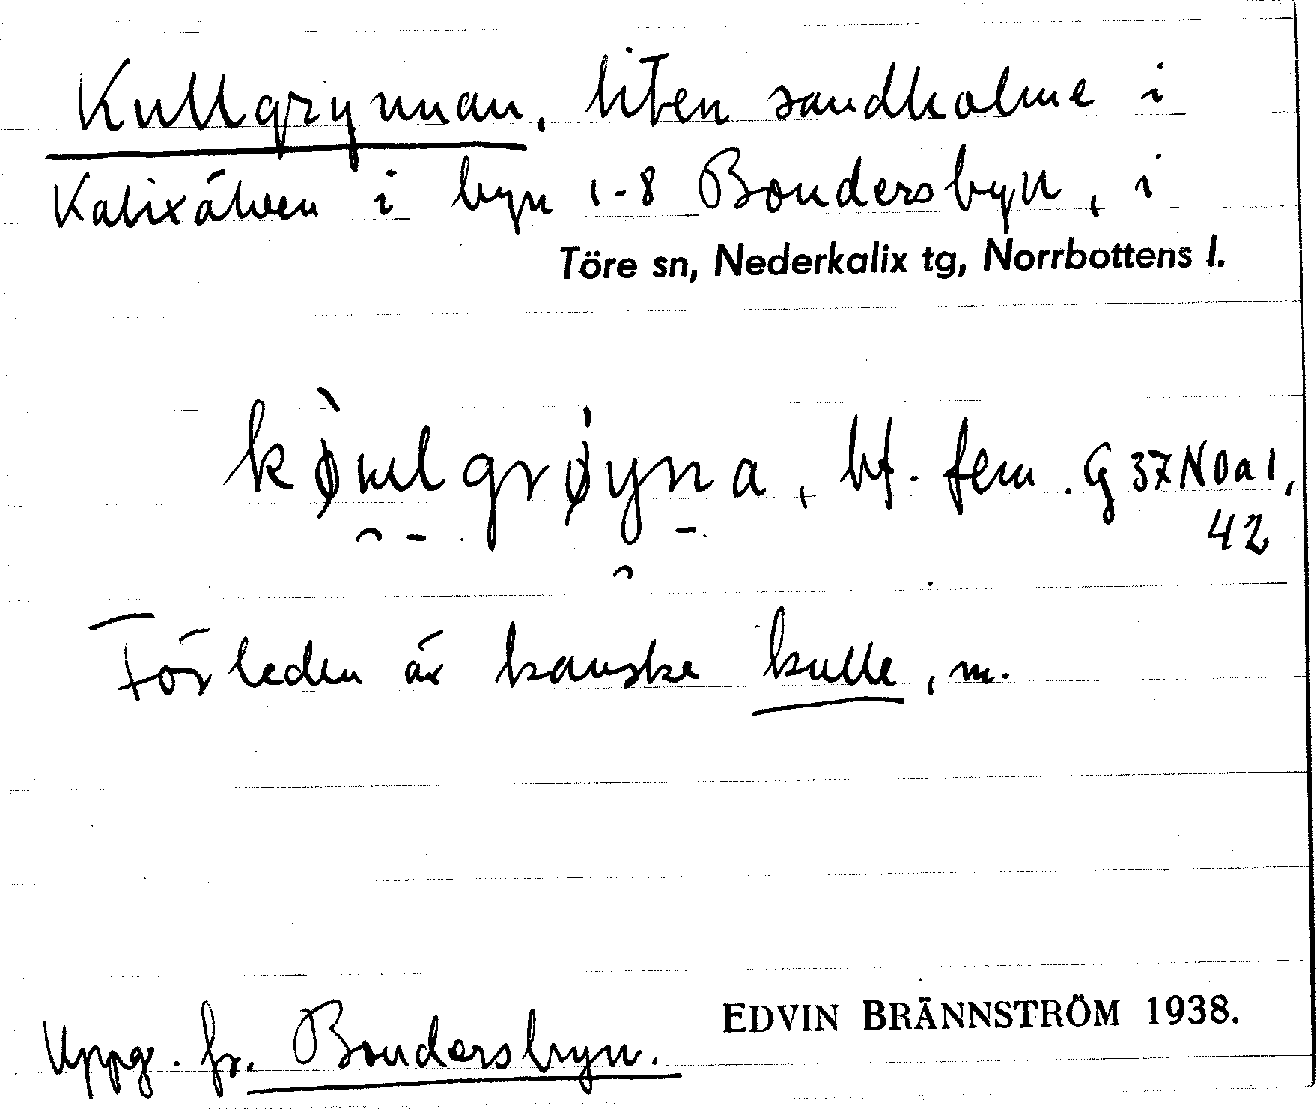 Kullgrynnan, liten sandholme i
Kalixälven i byn 1-8 Bondersbyn, i
Töre sn, Nederkalix tg, Norrbottens l.
bf. fem. G 37 N0a1,
42
Förleden är kanske kulle, m.
EDVIN BRÄNNSTRÖM 1938.
Uppg. fr. Bondersbyn.